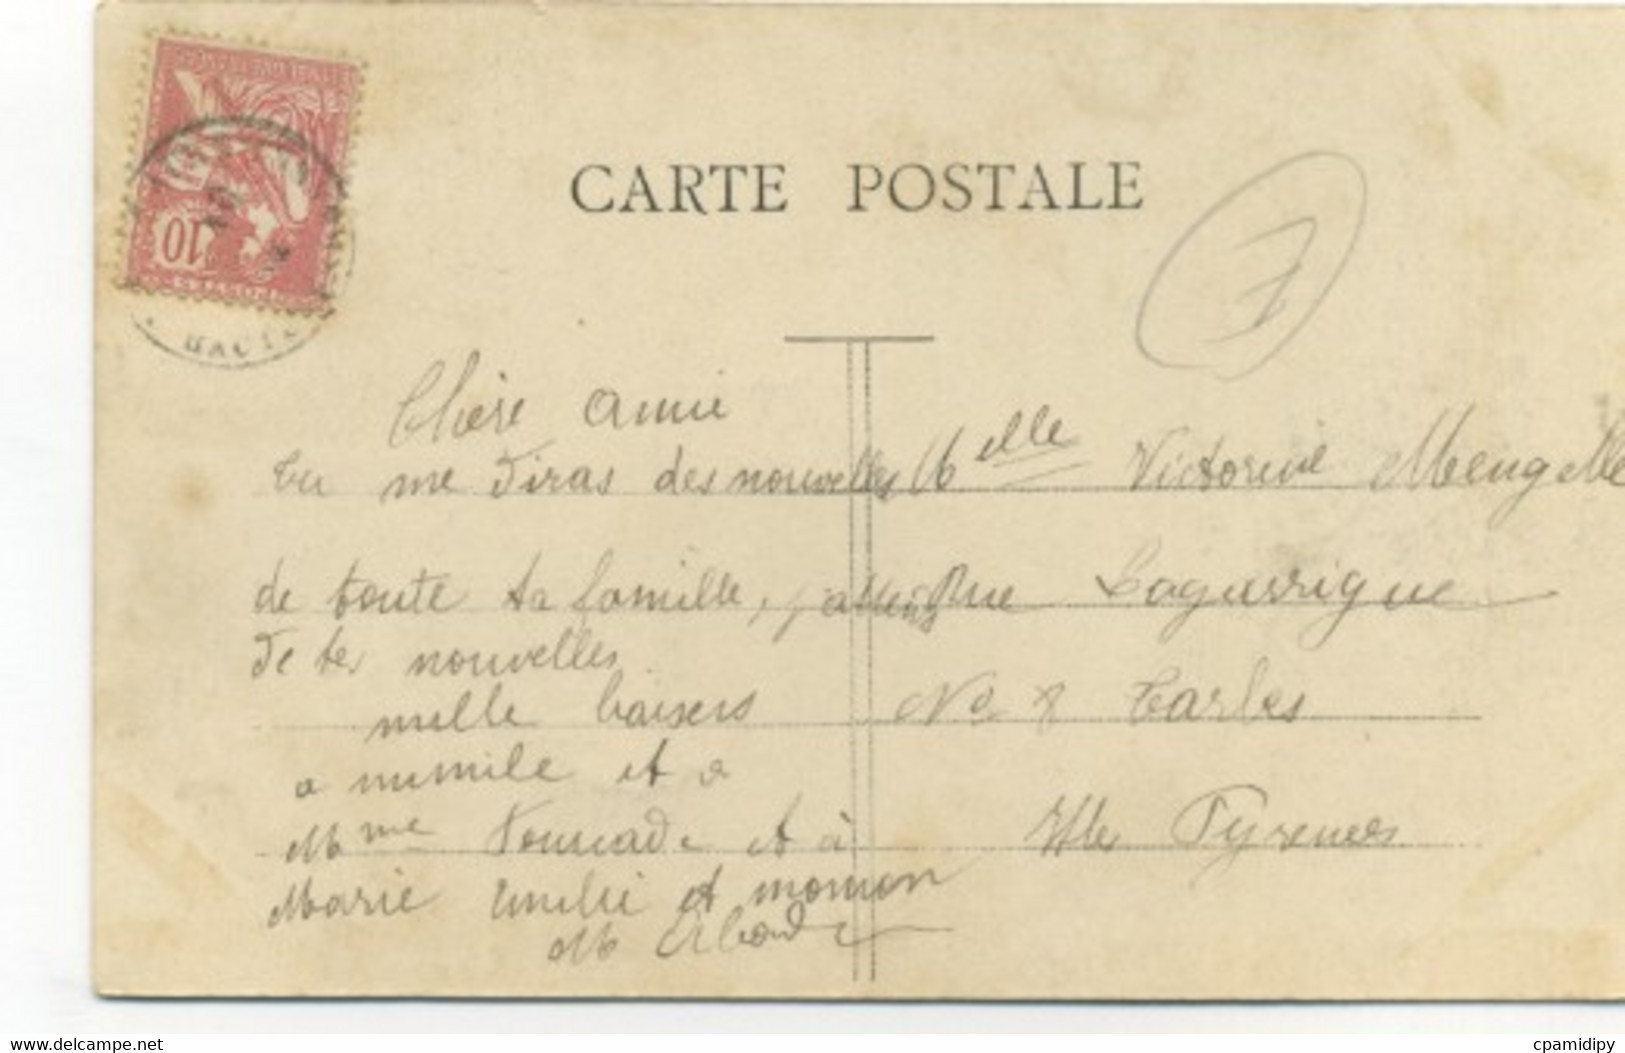 10
HAUTE
CARTE POSTALE
7
Chère amie
tu me diras des nouvelles
de toute ta famille, j'attens
de tes nouvelles
mille baisers
a mimile et a
Mme Fourcade et à
Marie Emilie et moman
M Abadie
Melle Victorine Mengelle
Rue Lagarrigue
No 8 Tarbes
Htes Pyrenees
www.delcampe.net
cpamidipy